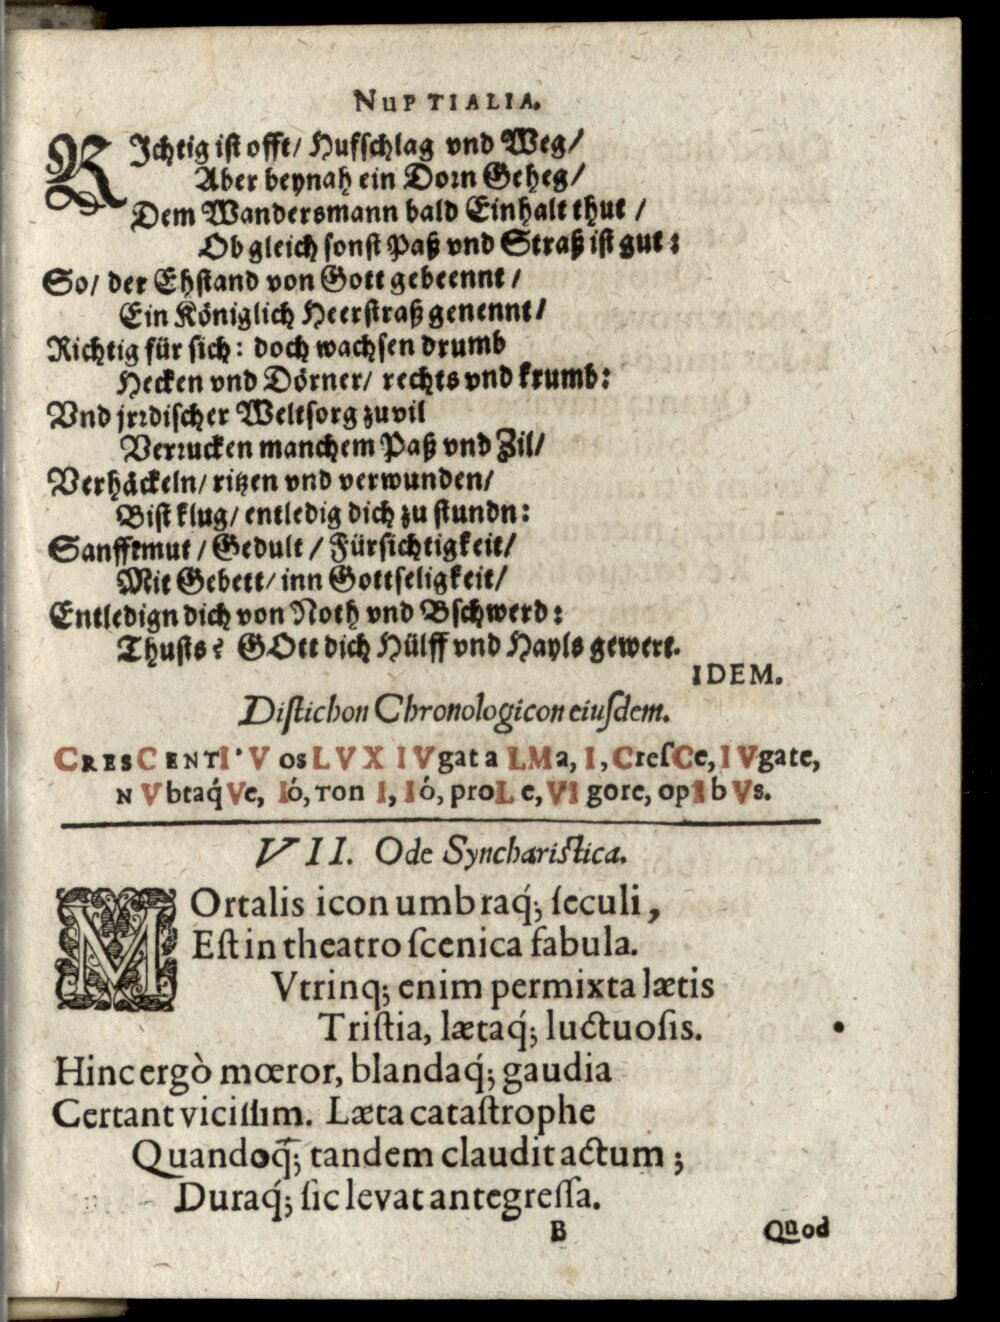 NUPTIALIA.
RIchtig ist offt/ Hufschlag vnd Weg/
Aber beynah ein Dorn Geheg/
Dem Wandersmann bald Einhalt thut /
Ob gleich sonst Paß vnd Straß ist gut:
So/ der Ehstand von Gott gebeennt/
Ein Königlich Heerstraß genennt/
Richtig für sich: doch wachsen drumb
Hecken vnd Dörner/ rechts vnd krumb:
Vnd jrrdischer Weltsorg zuvil
Verrucken manchem Paß vnd Zil/
Verhäckeln/ ritzen vnd verwunden/
Bist klug/ entledig dich zu stundn:
Sanfftmut / Gedult / Fürsichtigkeit/
Mit Gebett/ inn Gottseligkeit/
Entledign dich von Noth vnd Bschwerd:
Thusts? GOtt dich Hülff vnd Hayls gewert.
IDEM.
Distichon Chronologicon eiusdem.
CRESCENTI' VosLVX IVgata LMa, I, CresCe, IVgate,
NVbtaq́Ve, Ió, Ton I, Ió, proLe, VIgore, opIbVs.
VII. Ode Syncharistica.
MOrtalis icon umbraq́; seculi,
Est in theatro scenica fabula.
Vtrinq; enim permixta lætis
Tristia, lætaq́; luctuosis.
Hinc ergò mœror, blandaq́; gaudia
Certant vicissim. Læta catastrophe
Quandoq̃; tandem claudit actum ;
Duraq́; sic levat antegressa.
B Quod